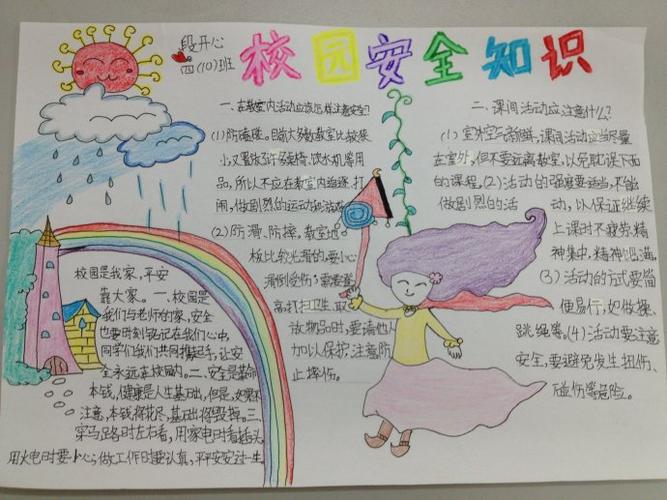 段开心
四(10)班
校园安全知识
一、在教室内活动应该怎样注意安全?
(1)防磕碰。目前大多数教室比较狭
小,又置放了许多桌椅、饮水机等用
品,所以不应在教室内追逐、打
闹,做剧烈的运动和游戏
(2)防滑、防摔。教室地
板比较光滑的,要小心
滑倒受伤;需要登
高打扫卫生、取
放物品时,要请他人
加以保护,注意防
止摔伤。
二、课间活动应注意什么?
(1)室外空气新鲜,课间活动应尽量
在室外,但不要远离教室,以免耽误下面
的课程。(2)活动的强度要适当,不能
做剧烈的活动,以保证继续
上课时不疲劳,精
神集中,精神饱满。
(3)活动的方式要简
便易行,如做操、
跳绳等。(4)活动要注意
安全,要避免发生扭伤、
碰伤等危险。
校园是我家,平安
靠大家。一、校园是
我们与老师的家,安全
也要时刻铭记在我们心中,
同学们我们共同携起手,让安
全永远在校园内。二、安全是
本钱,健康是人生基础,但是,如果不
注意,本钱将花尽,基础将毁掉。三、
穿马路时左右看,用家电时看插头,
用火电时要小心,做工作时要认真,平平安安过一生。